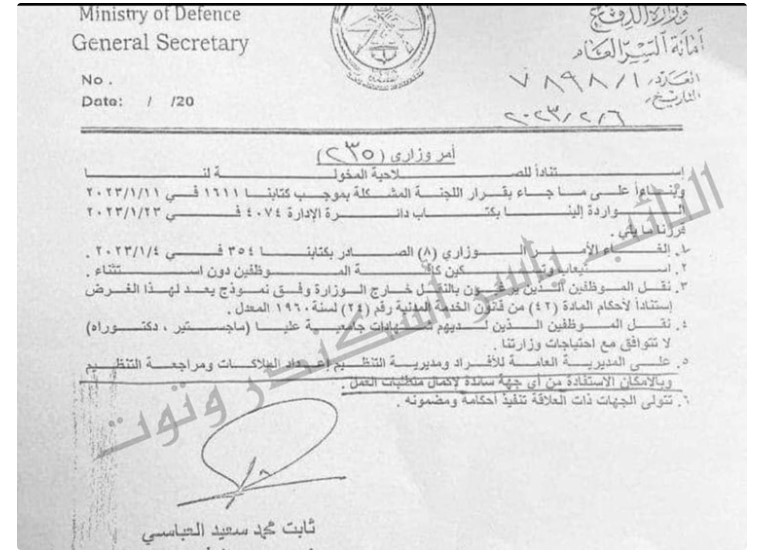 Ministry of Defence
General Secretary
No.
Date: / /20
وزارة الدفاع
أمانة السر العام
العدد/ ٧٨٩٨/١
التاريخ/
٢٠٢٣/٢/٦
أمر وزاري (٢٣٥)
إستناداً للصلاحية المخولة لنا
وبناءاً على ما جاء بقرار اللجنة المشكلة بموجب كتابنا ١٦١١ في ٢٠٢٣/١/١١
الواردة إلينا بكتاب دائرة الإدارة ٤٠٧٤ في ٢٠٢٣/١/٢٣
قررنا ما يلي .
١. إلغاء الأمر الوزاري (٨) الصادر بكتابنا ٣٥٤ في ٢٠٢٣/١/٤ .
٢. استيعاب وتسكين كافة الموظفين دون استثناء .
٣. نقل الموظفين الذين يرغبون بالنقل خارج الوزارة وفق نموذج يعد لهذا الغرض
إستناداً لأحكام المادة (٤٢) من قانون الخدمة المدنية رقم (٢٤) لسنة ١٩٦٠ المعدل .
٤. نقل الموظفين الذين لديهم شهادات جامعية عليا (ماجستير ، دكتوراه)
لا تتوافق مع احتياجات وزارتنا .
٥. على المديرية العامة للأفراد ومديرية التنظيم إعداد الملاكات ومراجعة التنظيم
وبالامكان الاستفادة من أي جهة ساندة لإكمال متطلبات العمل .
٦. تتولى الجهات ذات العلاقة تنفيذ احكامه ومضمونه .
النائب ياسر اسكندر وتوت
ثابت محمد سعيد العباسي